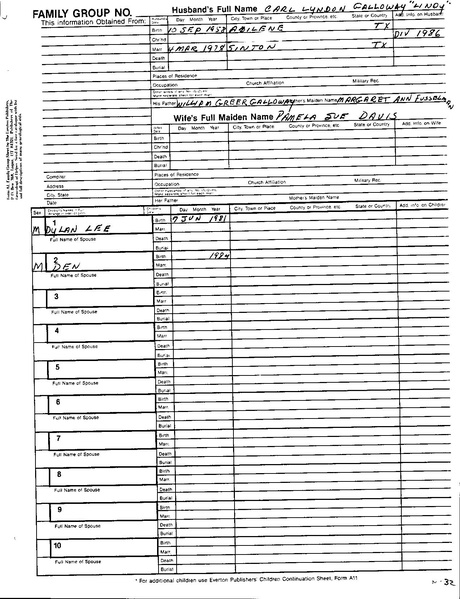 FAMILY GROUP NO.
This Information Obtained From:
Husband's Full Name CARL LYNDON GALLOWAY "LINDY"
Day Month Year City, Town or Place County or Province, etc. State or Country Add. Info. on Husband
Birth 10 SEP 1952 ABILENE TX DIV 1986
Chr'nd
Marr. 4 MAR 1978 SINTON TX
Death
Burial
Places of Residence
Occupation Church Affiliation Military Rec.
His Father WILLIAM GREER GALLOWAY Mother's Maiden Name MARGARET ANN
Wife's Full Maiden Name PAMELA SUE DAVIS
Day Month Year City, Town or Place County or Province, etc. State or Country Add. Info. on Wife
Birth
Chr'nd
Death
Burial
Compiler
Places of Residence
Address
Occupation Church Affiliation Military Rec.
City, State
Date
Her Father Mother's Maiden Name
Sex
Day Month Year City, Town or Place County or Province, etc. State or Country Add. Info. on Children
1
Birth 7 JUN 1981
M DYLAN LEE
Marr.
Full Name of Spouse
Death
Burial
2
Birth 1984
M BEN
Marr.
Full Name of Spouse
Death
Burial
3
Birth
Marr.
Full Name of Spouse
Death
Burial
4
Birth
Marr.
Full Name of Spouse
Death
Burial
5
Birth
Marr.
Full Name of Spouse
Death
Burial
6
Birth
Marr.
Full Name of Spouse
Death
Burial
7
Birth
Marr.
Full Name of Spouse
Death
Burial
8
Birth
Marr.
Full Name of Spouse
Death
Burial
9
Birth
Marr.
Full Name of Spouse
Death
Burial
10
Birth
Marr.
Full Name of Spouse
Death
Burial
* For additional children use Everton Publishers' Children Continuation Sheet, Form A11